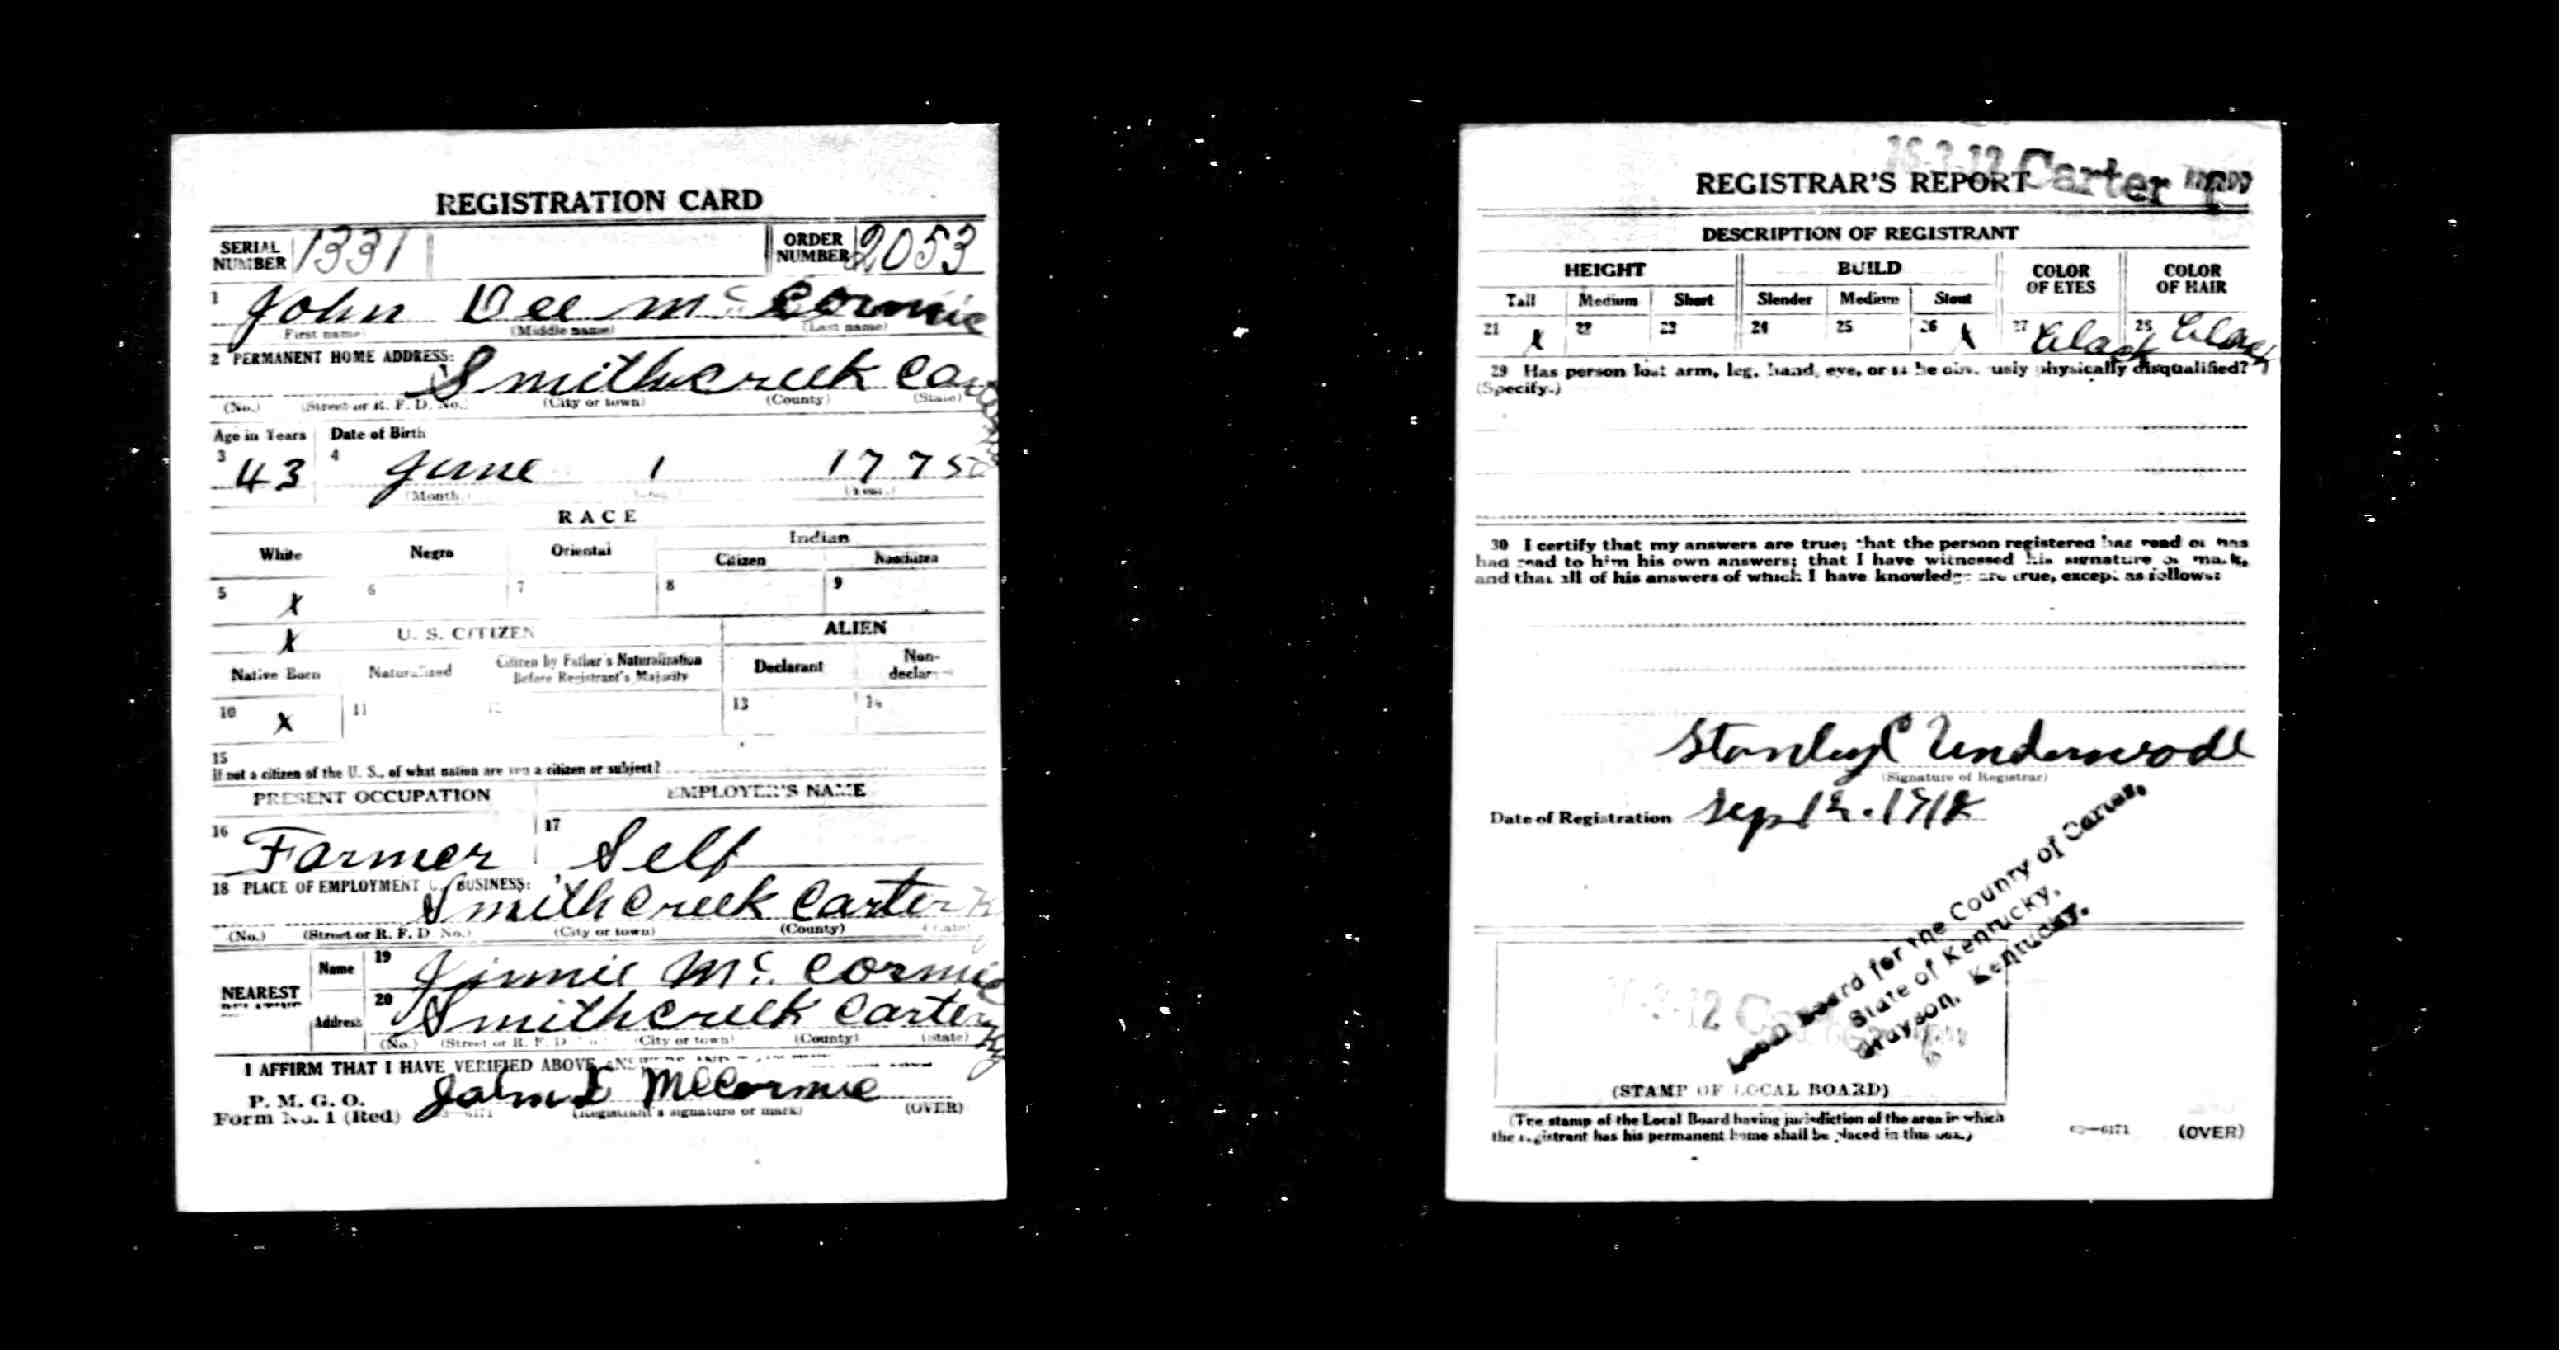 REGISTRATION CARD
SERIAL NUMBER 1331
ORDER NUMBER 2053
1 John Dee Mc Cormic
(First name) (Middle name) (Last name)
2 PERMANENT HOME ADDRESS:
Smithcreek Car
(No.) (Street or R. F. D. No.) (City or town) (County) (State)
Age in Years Date of Birth
3 43 4 June 1 1775
(Month.)
RACE
White Negro Oriental Indian
Citizen Noncitizen
5 X 6 7 8 9
X U. S. CITIZEN ALIEN
Native Born Naturalized Citizen by Father's Naturalization Before Registrant's Majority Declarant Non-declarant
10 X 11 12 13 14
15
If not a citizen of the U. S., of what nation are you a citizen or subject?
PRESENT OCCUPATION EMPLOYER'S NAME
16 Farmer 17 Self
18 PLACE OF EMPLOYMENT OR BUSINESS:
Smithcreek Carter
(No.) (Street or R. F. D. No.) (City or town) (County) (State)
NEAREST RELATIVE
Name 19 Jinnie Mc. Cormic
Address 20 Smithcreek Carter Ky
(No.) (Street or R. F. D. No.) (City or town) (County) (State)
I AFFIRM THAT I HAVE VERIFIED ABOVE
P. M. G. O.
Form No. 1 (Red) John D McCormic
(Registrant's signature or mark) (OVER)
16-2-12 Carter
REGISTRAR'S REPORT
DESCRIPTION OF REGISTRANT
HEIGHT BUILD COLOR OF EYES COLOR OF HAIR
Tall Medium Short Slender Medium Stout
21 X 22 23 24 25 26 X 27 Black 28 Black
29 Has person lost arm, leg, hand, eye, or is he obviously physically disqualified?
(Specify.)
30 I certify that my answers are true; that the person registered has read or has
had read to him his own answers; that I have witnessed his signature or mark,
and that all of his answers of which I have knowledge are true, except as follows:
Stanley C Underwood
(Signature of Registrar)
Date of Registration Sep 12. 1918
Local Board for the County of Carter,
State of Kentucky,
Grayson, Kentucky.
(STAMP OF LOCAL BOARD)
(The stamp of the Local Board having jurisdiction of the area in which
the registrant has his permanent home shall be placed in this box.)
(OVER)